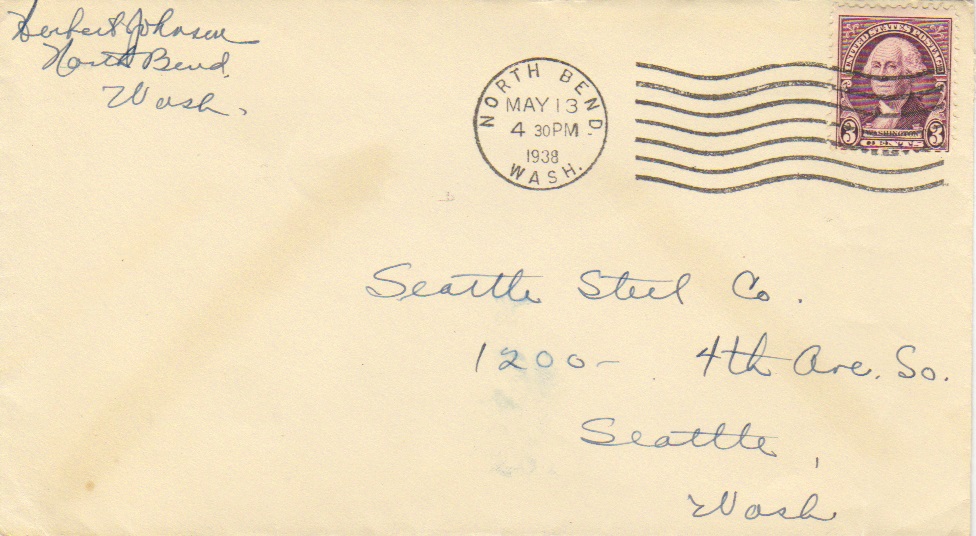 Herbert Johnson
North Bend,
Wash.
NORTH BEND.
MAY 13
4 30PM
1938
WASH.
UNITED STATES POSTAGE
3 WASHINGTON 3
CENTS
Seattle Steel Co.
1200- 4th Ave. So.
Seattle,
Wash